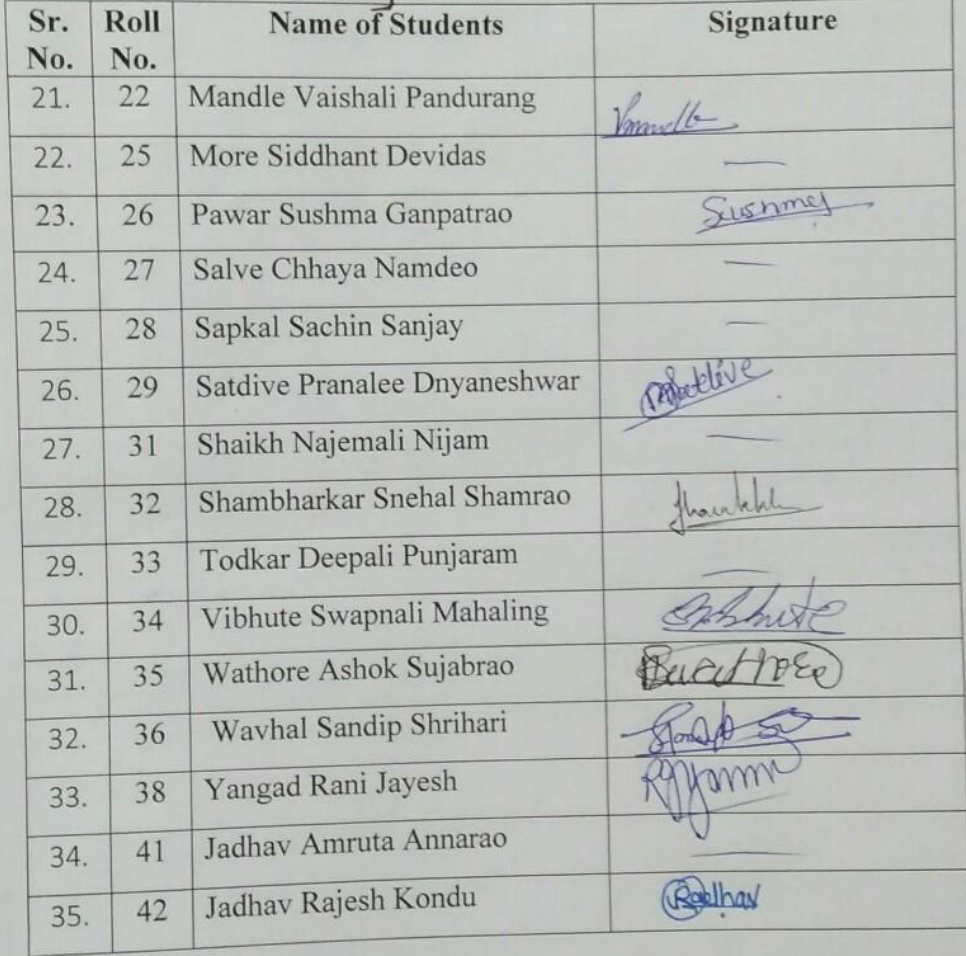 Sr. No. Roll No. Name of Students Signature
21. 22 Mandle Vaishali Pandurang
22. 25 More Siddhant Devidas —
23. 26 Pawar Sushma Ganpatrao Sushma
24. 27 Salve Chhaya Namdeo —
25. 28 Sapkal Sachin Sanjay —
26. 29 Satdive Pranalee Dnyaneshwar
27. 31 Shaikh Najemali Nijam —
28. 32 Shambharkar Snehal Shamrao
29. 33 Todkar Deepali Punjaram —
30. 34 Vibhute Swapnali Mahaling
31. 35 Wathore Ashok Sujabrao
32. 36 Wavhal Sandip Shrihari
33. 38 Yangad Rani Jayesh
34. 41 Jadhav Amruta Annarao —
35. 42 Jadhav Rajesh Kondu